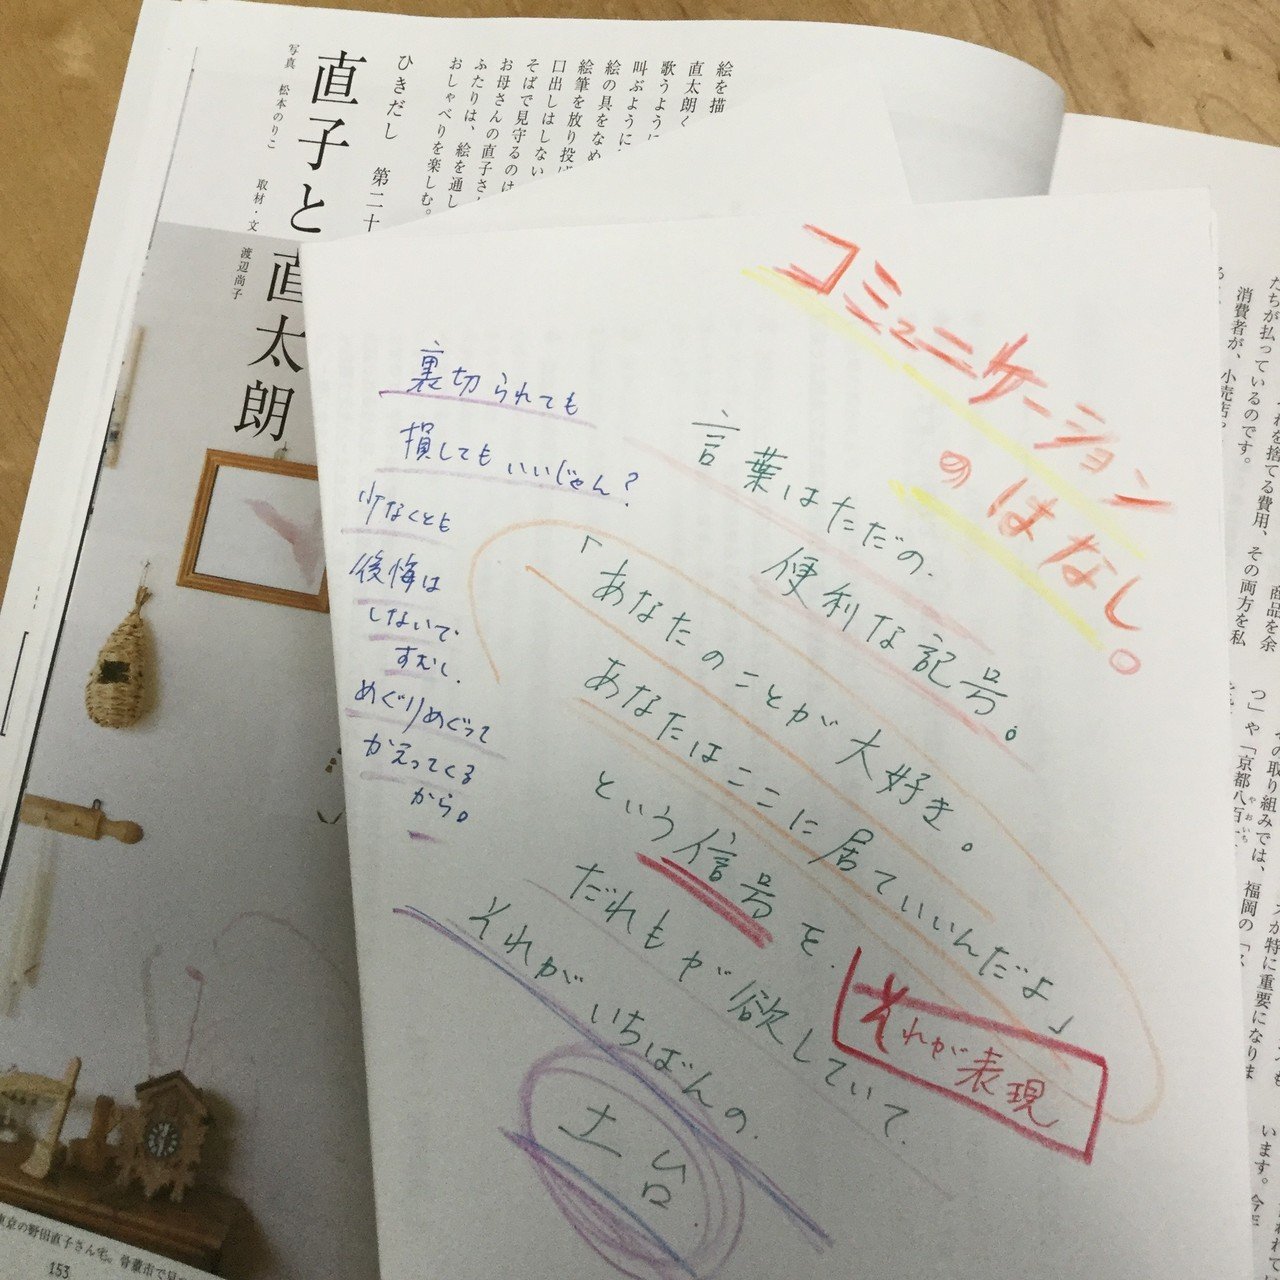 コミュニケーション
のはなし。
言葉はただの
便利な記号。
「あなたのことが大好き。
あなたはここに居ていいんだよ」
という信号を
だれもが欲していて
それがいちばんの
土台
それが表現
裏切られても
損してもいいじゃん？
少なくとも
後悔は
しないで
すむし
めぐりめぐって
かえってくる
から。
絵を描
直太朗く
歌うように
叫ぶように
絵の具をなめ
絵筆を放り投げ
口出しはしない
そばで見守るのは
お母さんの直子さん
ふたりは、絵を通し
おしゃべりを楽しむ。
ひきだし 第二十
直子と直太朗
写真 松本のりこ 取材・文 渡辺尚子
東京の野田直子さん宅。骨董市で見
153
を捨てる費用、その両方を私
たちが払っているのです。 商品を余
消費者が、小売店
の取り組みでは、
が特に重要になりま
つ」や「京都八百
やおいち
福岡の「
います。今年